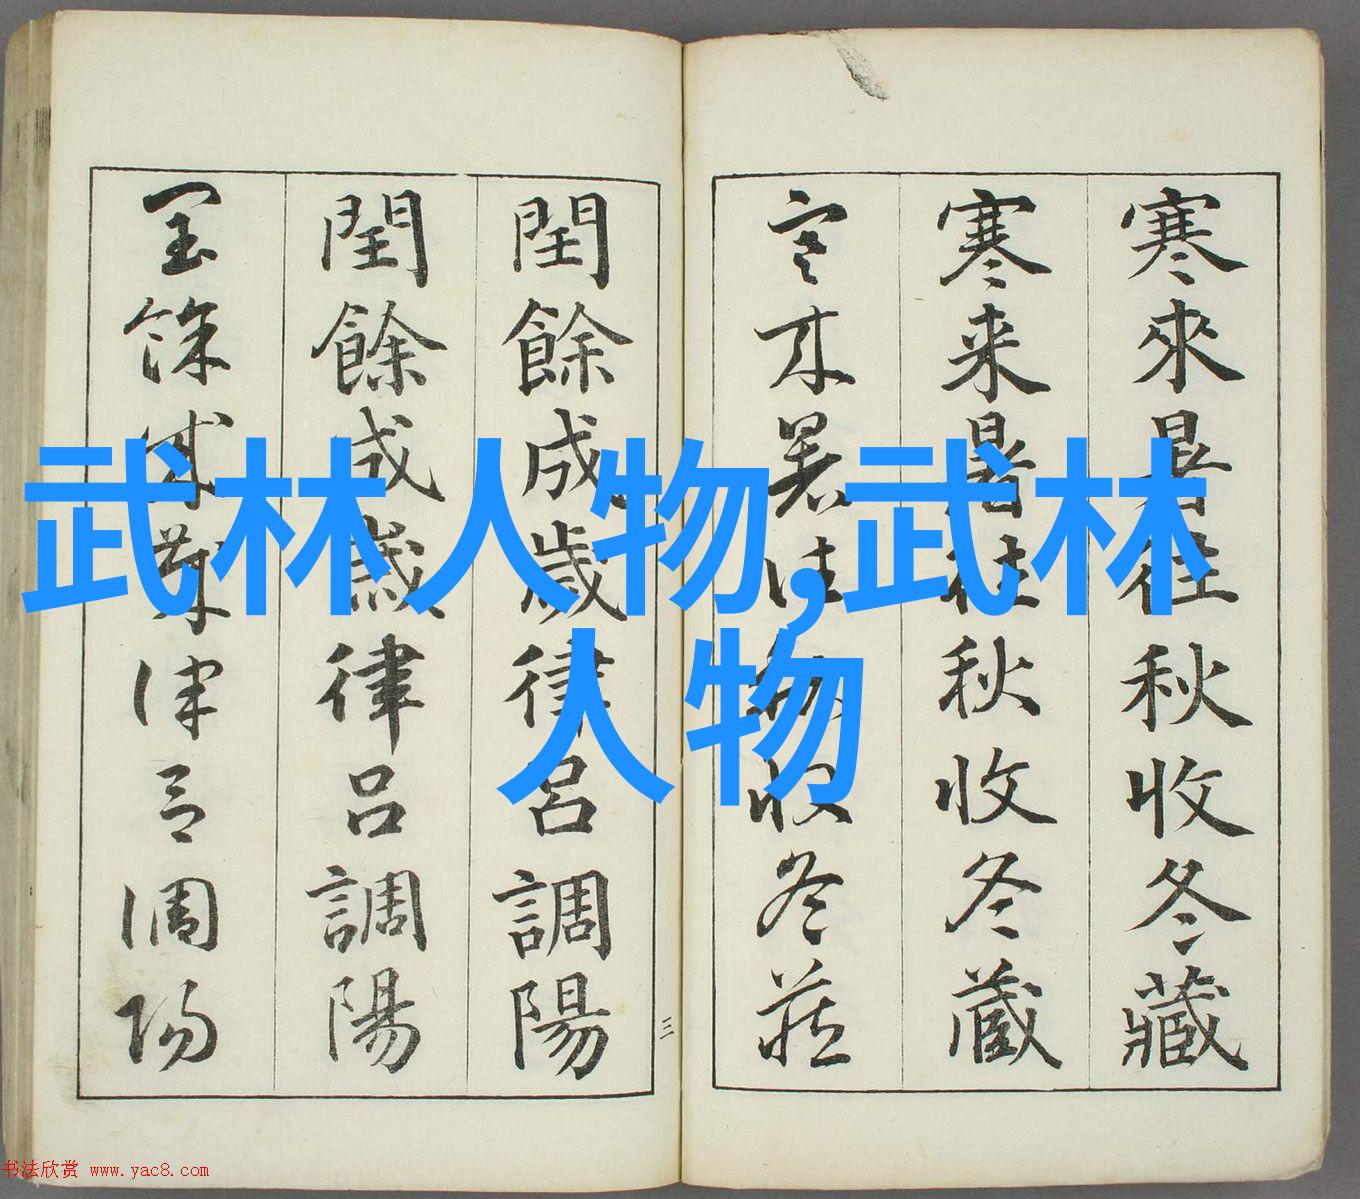 寒來暑往秋收冬藏
寒来暑往秋收冬蔵
寒来暑往秋收冬藏
閏餘成歲律呂調陽
閏餘成歲律吕調陽
閏餘成歲律呂調陽
三
武林人物,武林
人物
书法欣赏 www.yac8.com